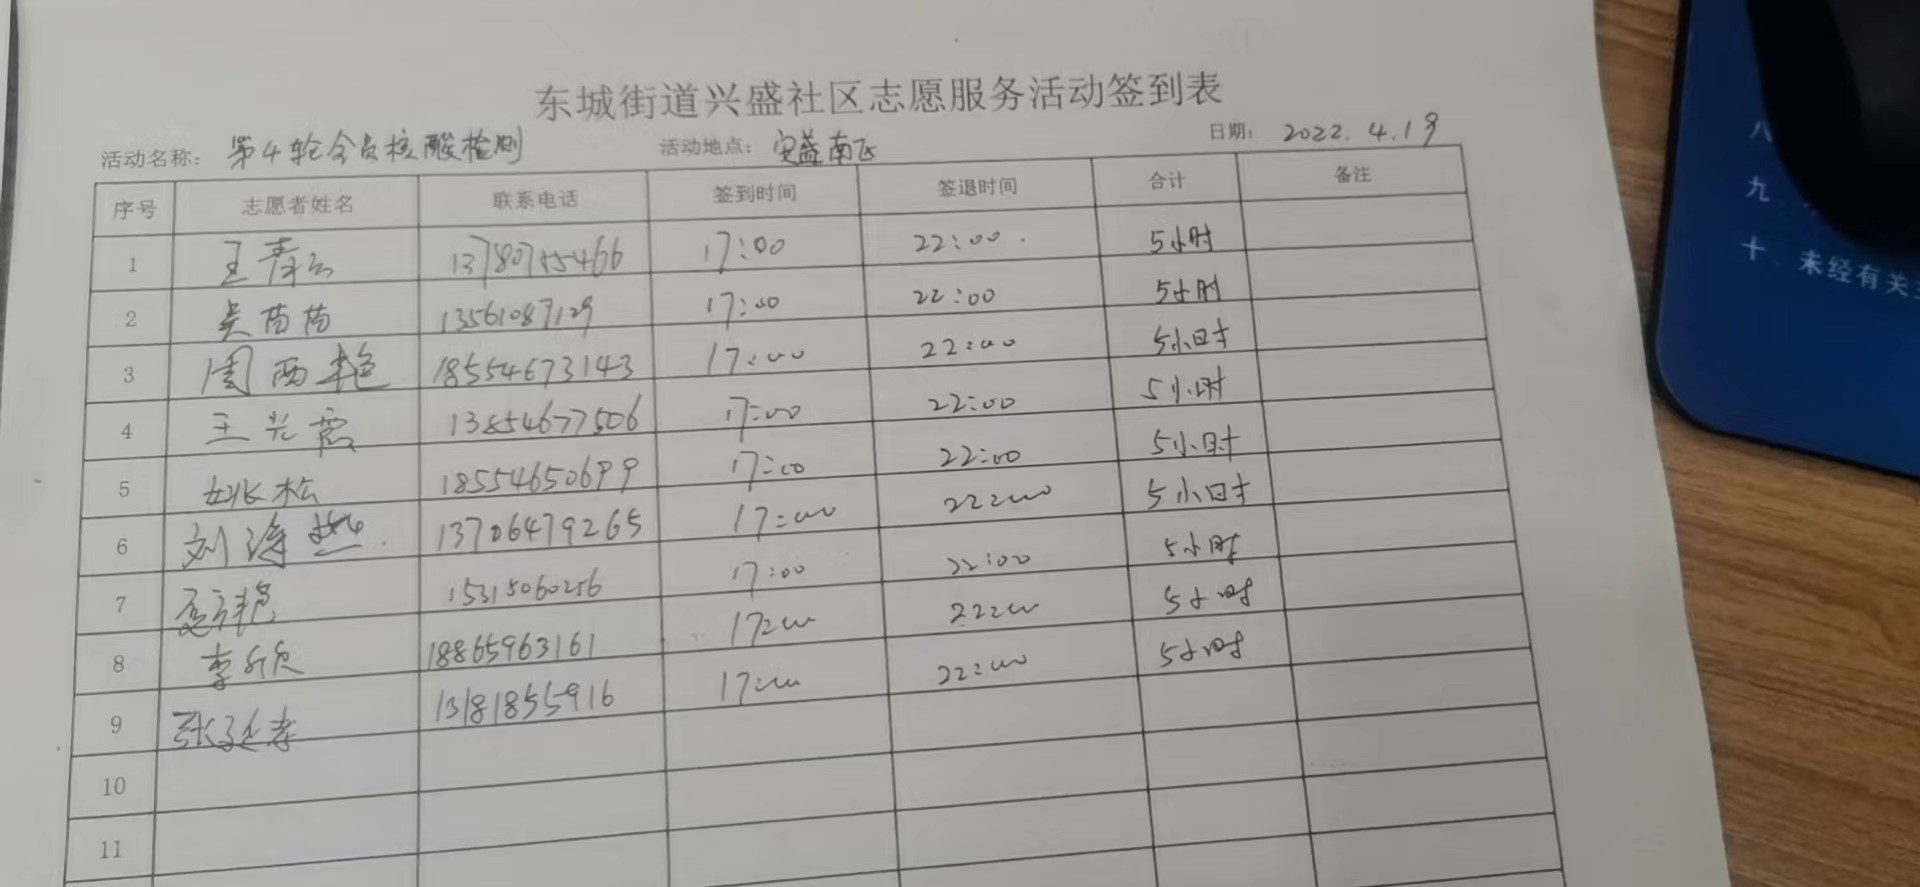 东城街道兴盛社区志愿服务活动签到表
活动名称: 第4轮全员核酸检测 活动地点: 安益南区 日期: 2022.4.19
序号 志愿者姓名 联系电话 签到时间 签退时间 合计 备注
1 王青云 17:00 22:00 5小时
2 吴苗苗 13561087129 17:00 22:00 5小时
3 周西艳 18554673143 17:00 22:00 5小时
4 王兴霞 13854677506 17:00 22:00 5小时
5 姚松 18554650699 17:00 22:00 5小时
6 刘 13706479265 17:00 22:00 5小时
7 15315060256 17:00 22:00 5小时
8 李欣 18865963161 17:00 22:00 5小时
9 张延孝 13181855916 17:00 22:00 5小时
10
11
八
九、
十、未经有关